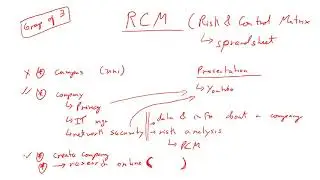 Group of 3
RCM (Risk & Control Matrix
spreadsheet
x campus (uni) Presentation
company Youtube
Privacy
IT mgr data & info about a company
network security risk analysis
RCM
create company
research online ( )